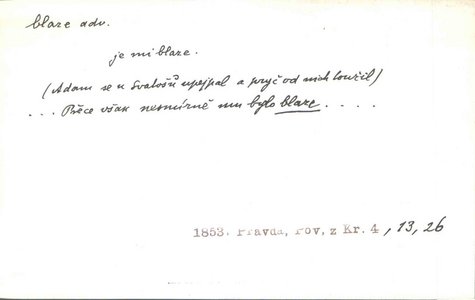 blaze adv.
je mi blaze.
(Adam se u Svatošů upejpal a pryč od nich toužil)
... Přece však nesmírně mu bylo blaze....
1853. Pravda, Pov. z Kr. 4, 13, 26